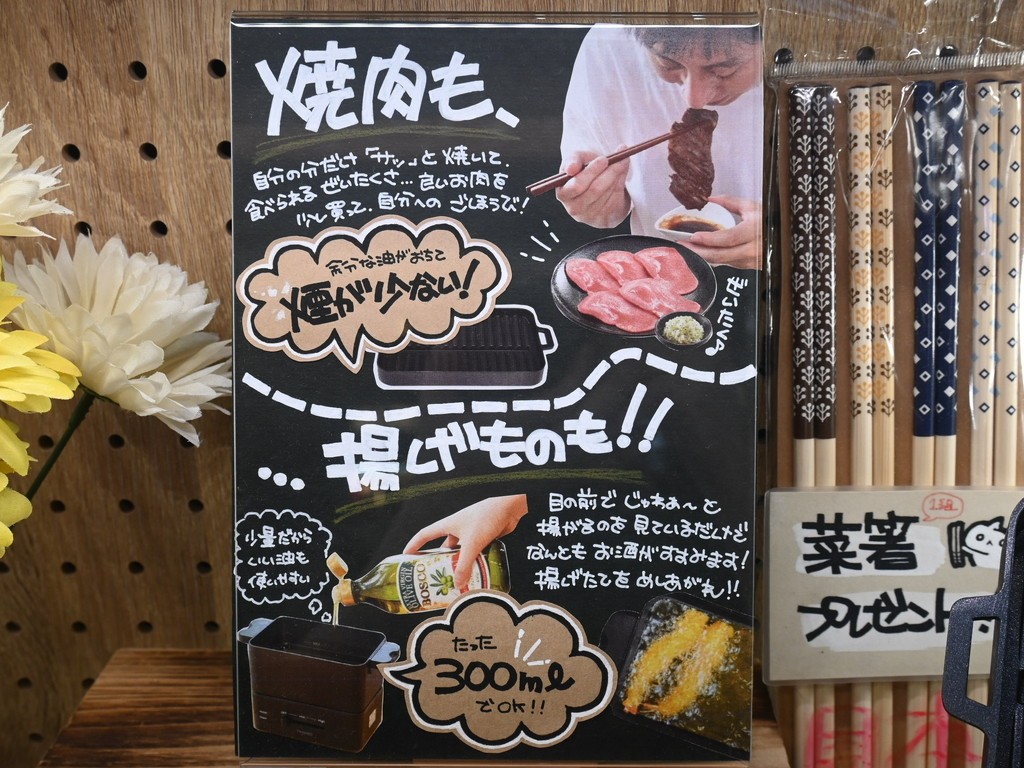 焼肉も、
自分の分だけ「サッ」と焼いて、
食べられるぜいたくさ…良いお肉を
少し買って、自分へのごほうび!
余分な油がおちて
煙が少ない!
…揚げものも!!
目の前でじゅわぁ〜と
揚がるのを見ているだけで
なんともお酒がすすみます!
揚げたてをめしあがれ!!
少量だから
いい油も
使いやすい
EXTRA VIRGIN
OLIVE OIL
BOSCO
たった
300ml
でOK!!
1組
菜箸
日本